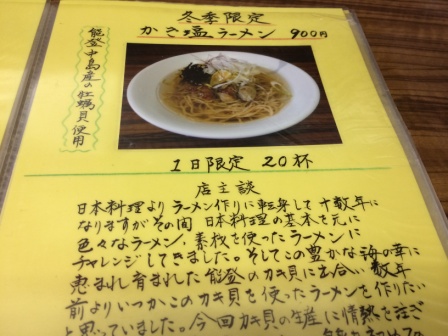 冬季限定
かき塩ラーメン 900円
能登中島産の牡蠣貝使用
1日限定 20杯
店主談
日本料理よりラーメン作りに転身して十数年に
なりますがその間 日本料理の基本を元に
色々なラーメン、素材を使ったラーメンに
チャレンジしてきました。そしてこの豊かな海の幸に
恵まれ育まれた能登のカキ貝に出会い 数年
前よりいつかこのカキ貝を使ったラーメンを作りたい
と思っていました。今回カキ貝の生産に情熱を注ぎ